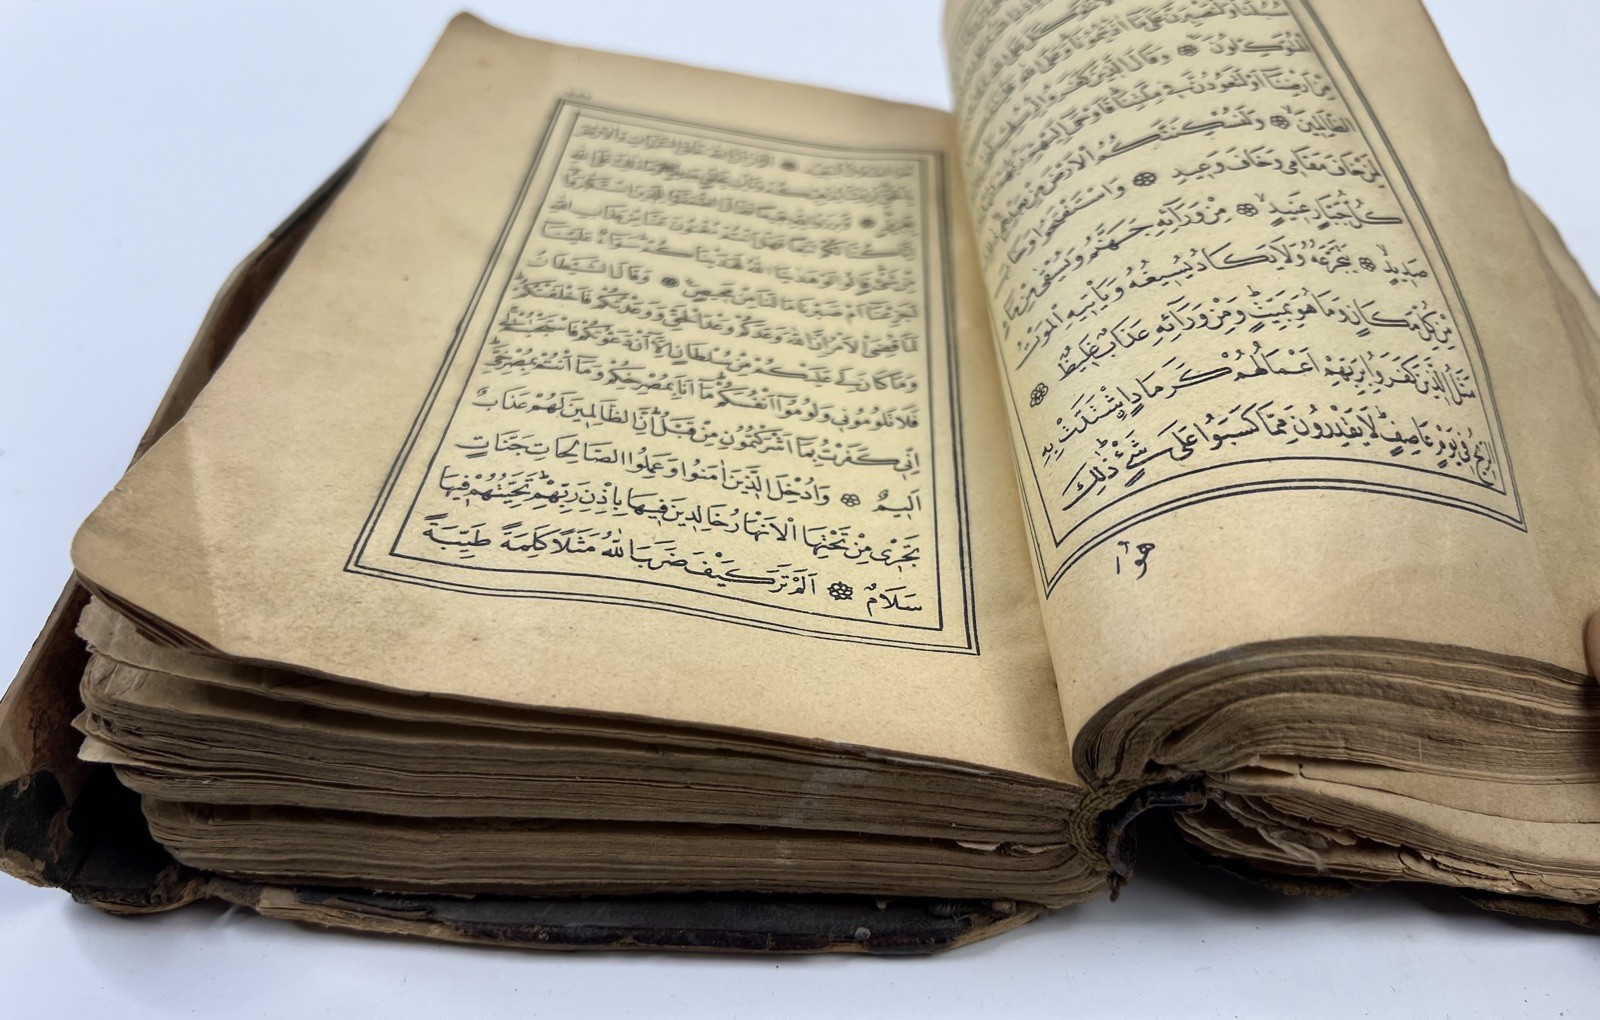 سُبُلَنَا وَلَنَصْبِرَنَّ عَلٰى مَا اٰذَيْتُمُونَا وَعَلَى اللّٰهِ
الْمُتَوَكِّلُونَ ۞ وَقَالَ الَّذِينَ كَفَرُوا
مِنْ اَرْضِنَا اَوْ لَتَعُودُنَّ فِي مِلَّتِنَا فَاَوْحٰى اِلَيْهِمْ
الظَّالِمِينَ ۞ وَلَنُسْكِنَنَّكُمُ الْاَرْضَ مِنْ
لِمَنْ خَافَ مَقَامِي وَخَافَ وَعِيدِ ۞ وَاسْتَفْتَحُوا وَخَابَ
كُلُّ جَبَّارٍ عَنِيدٍ ۞ مِنْ وَرَائِهِ جَهَنَّمُ وَيُسْقٰى مِنْ مَاءٍ
صَدِيدٍ ۞ يَتَجَرَّعُهُ وَلَا يَكَادُ يُسِيغُهُ وَيَأْتِيهِ الْمَوْتُ
مِنْ كُلِّ مَكَانٍ وَمَا هُوَ بِمَيِّتٍ وَمِنْ وَرَائِهِ عَذَابٌ غَلِيظٌ ۞
مَثَلُ الَّذِينَ كَفَرُوا بِرَبِّهِمْ اَعْمَالُهُمْ كَرَمَادٍ اشْتَدَّتْ بِهِ
الرِّيحُ فِي يَوْمٍ عَاصِفٍ لَا يَقْدِرُونَ مِمَّا كَسَبُوا عَلٰى شَيْءٍ ذٰلِكَ
هُوَ
هُوَ الضَّلَالُ الْبَعِيدُ ۞ اَلَمْ تَرَ اَنَّ اللّٰهَ خَلَقَ السَّمٰوَاتِ وَالْاَرْضَ
بِالْحَقِّ اِنْ يَشَأْ يُذْهِبْكُمْ وَيَأْتِ بِخَلْقٍ جَدِيدٍ ۞ وَمَا ذٰلِكَ عَلَى اللّٰهِ
بِعَزِيزٍ ۞ وَبَرَزُوا لِلّٰهِ جَمِيعًا فَقَالَ الضُّعَفٰؤُا لِلَّذِينَ اسْتَكْبَرُوا
اِنَّا كُنَّا لَكُمْ تَبَعًا فَهَلْ اَنْتُمْ مُغْنُونَ عَنَّا مِنْ عَذَابِ اللّٰهِ
مِنْ شَيْءٍ قَالُوا لَوْ هَدٰينَا اللّٰهُ لَهَدَيْنَاكُمْ سَوَاءٌ عَلَيْنَا
اَجَزِعْنَا اَمْ صَبَرْنَا مَا لَنَا مِنْ مَحِيصٍ ۞ وَقَالَ الشَّيْطَانُ
لَمَّا قُضِيَ الْاَمْرُ اِنَّ اللّٰهَ وَعَدَكُمْ وَعْدَ الْحَقِّ وَوَعَدْتُكُمْ فَاَخْلَفْتُكُمْ
وَمَا كَانَ لِيَ عَلَيْكُمْ مِنْ سُلْطَانٍ اِلَّا اَنْ دَعَوْتُكُمْ فَاسْتَجَبْتُمْ لِي
فَلَا تَلُومُونِي وَلُومُوا اَنْفُسَكُمْ مَا اَنَا بِمُصْرِخِكُمْ وَمَا اَنْتُمْ بِمُصْرِخِيَّ
اِنِّي كَفَرْتُ بِمَا اَشْرَكْتُمُونِ مِنْ قَبْلُ اِنَّ الظَّالِمِينَ لَهُمْ عَذَابٌ
اَلِيمٌ ۞ وَاُدْخِلَ الَّذِينَ اٰمَنُوا وَعَمِلُوا الصَّالِحَاتِ جَنَّاتٍ
تَجْرِي مِنْ تَحْتِهَا الْاَنْهَارُ خَالِدِينَ فِيهَا بِاِذْنِ رَبِّهِمْ تَحِيَّتُهُمْ فِيهَا
سَلَامٌ ۞ اَلَمْ تَرَ كَيْفَ ضَرَبَ اللّٰهُ مَثَلًا كَلِمَةً طَيِّبَةً